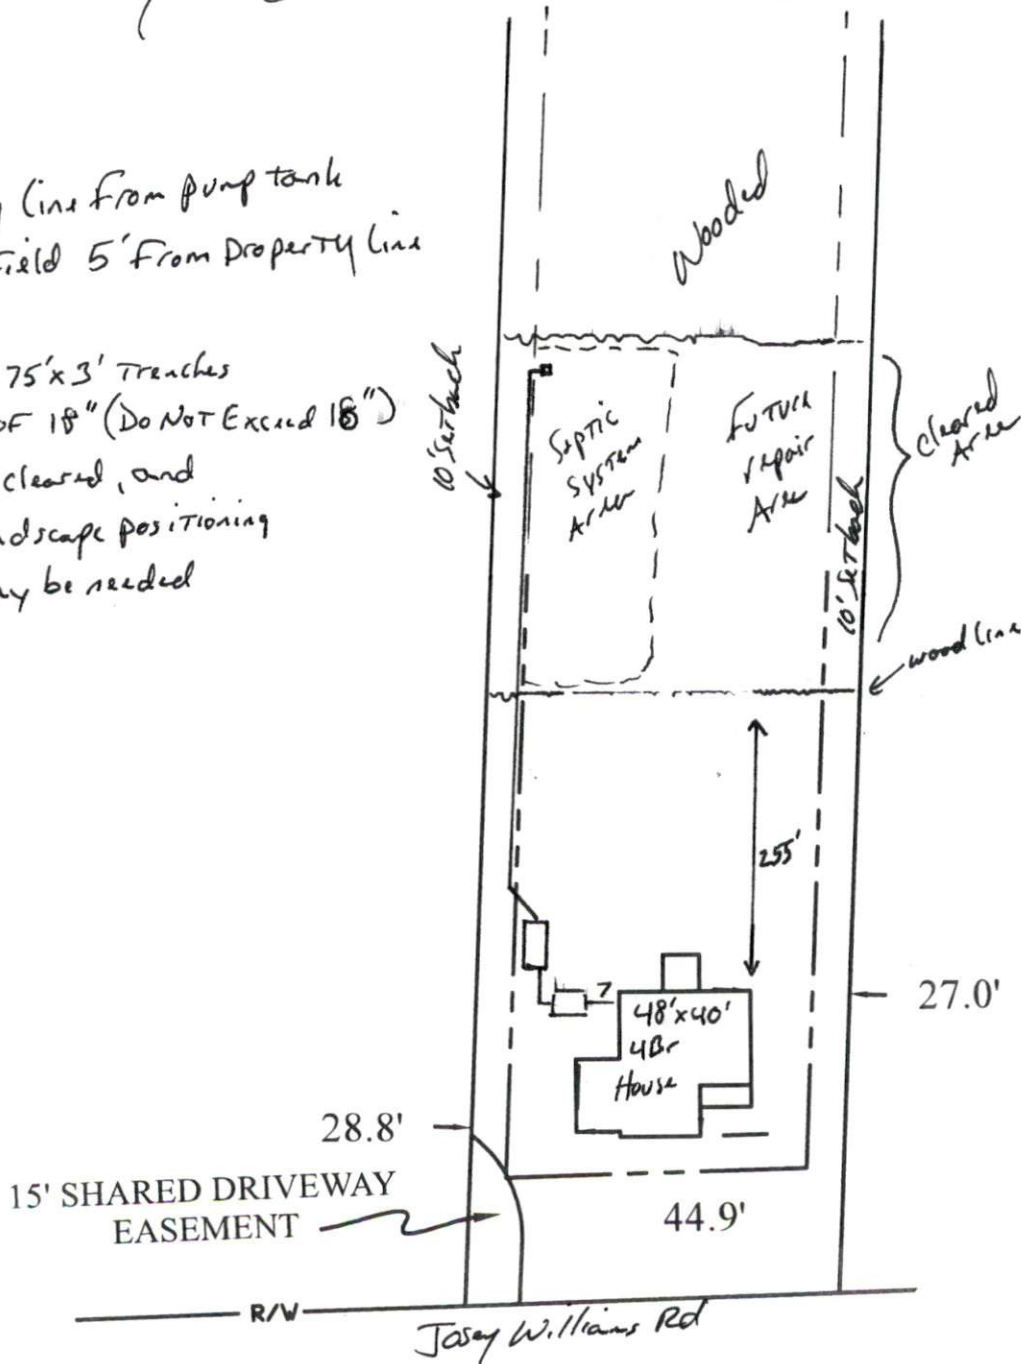 line From pump tank
Field 5' From Property Line
75'x3' Trenches
OF 18" (Do Not Exceed 18")
cleared, and
landscape positioning
may be needed
Wooded
10' Setback
Septic
System
Area
Future
repair
Area
10' Setback
Cleared
Area
wood line
255'
7
48'x40'
4Br
House
27.0'
28.8'
15' SHARED DRIVEWAY
EASEMENT
44.9'
R/W
Josey Williams Rd